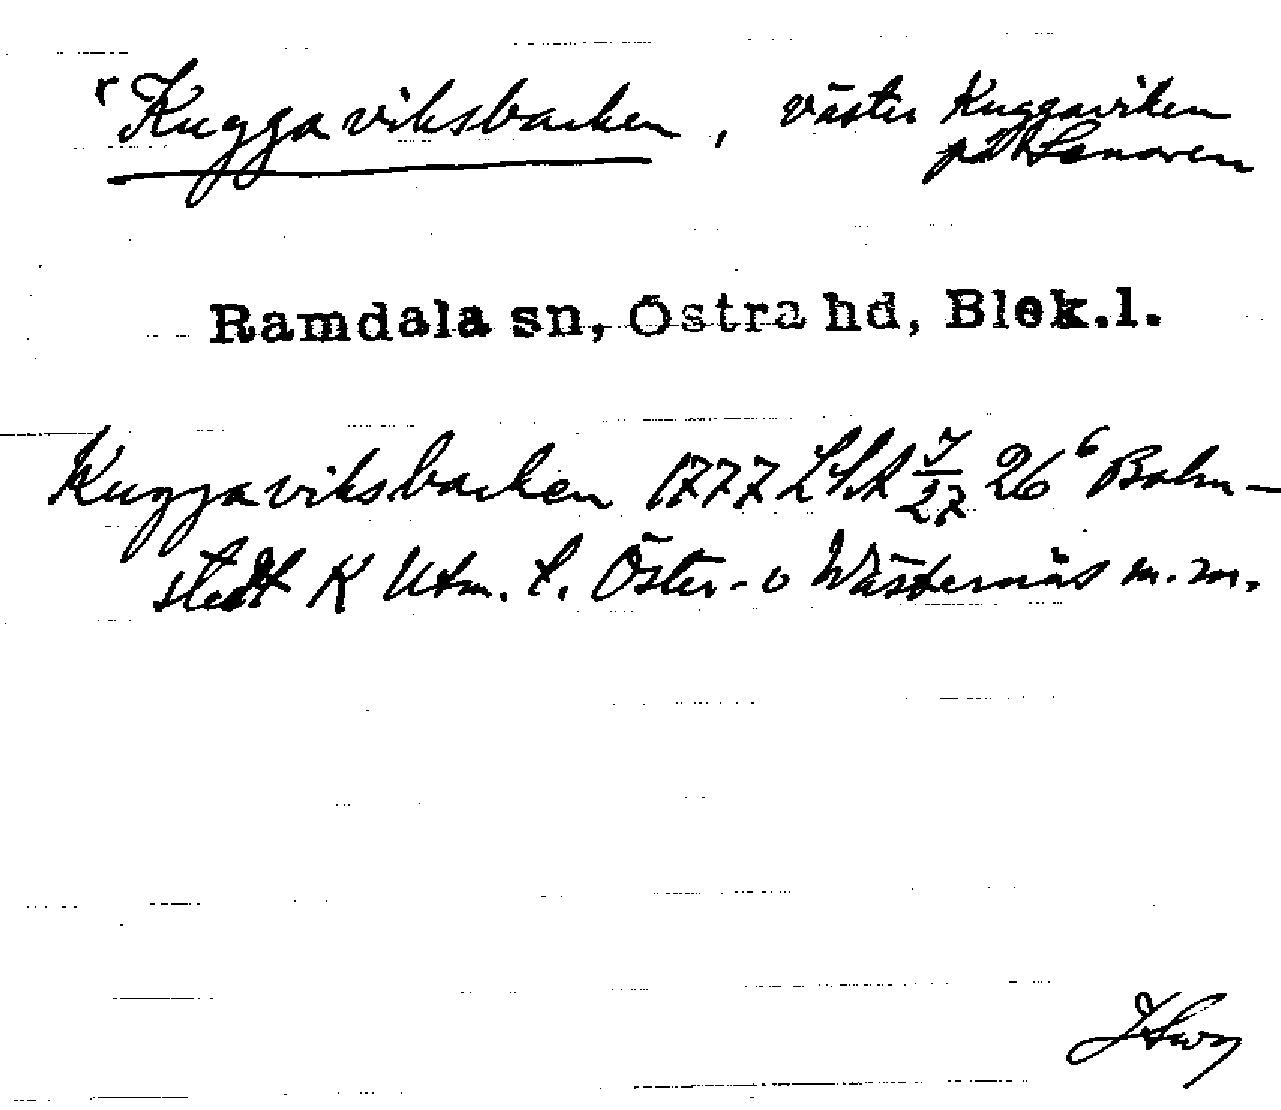 r Kuggaviksbacken, väster Kuggaviken
på Senoren
Ramdala sn, Östra hd, Blek.l.
Kuggaviksbacken 1777 LSA J/27 26⁶ Bolm-
stedt K Utm. t. Öster- o Wästernäs m.m.